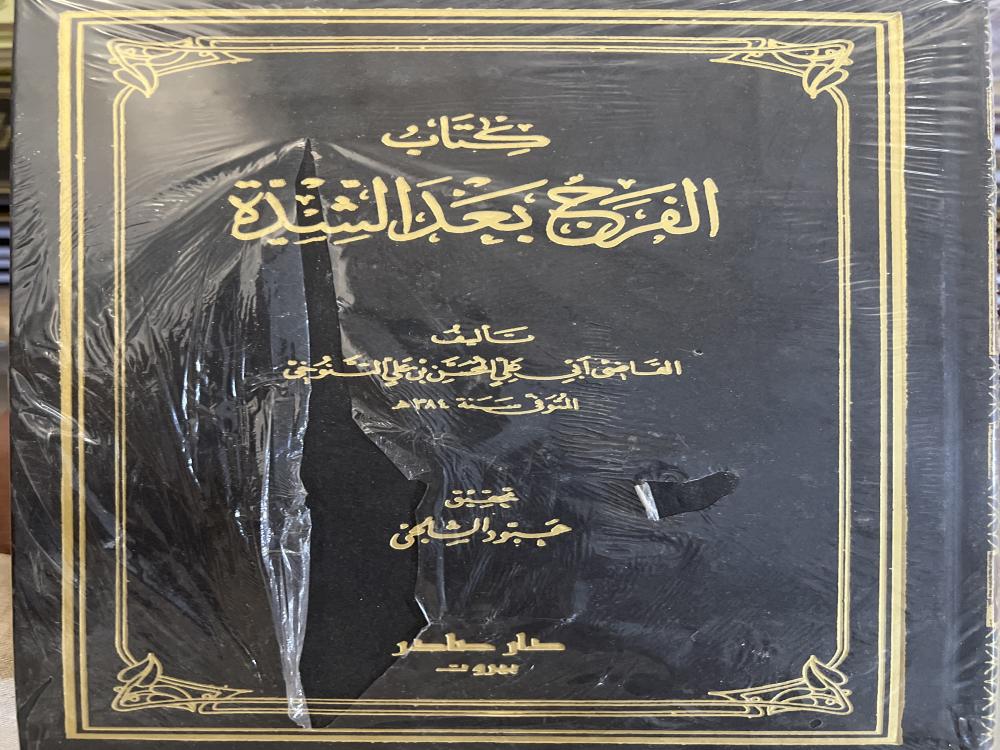 كتاب
الفرج بعد الشدة
تأليف
القاضي أبي علي المحسن بن علي التنوخي
المتوفى سنة ٣٨٤ هـ
تحقيق
عبود الشالجي
دار صادر
بيروت